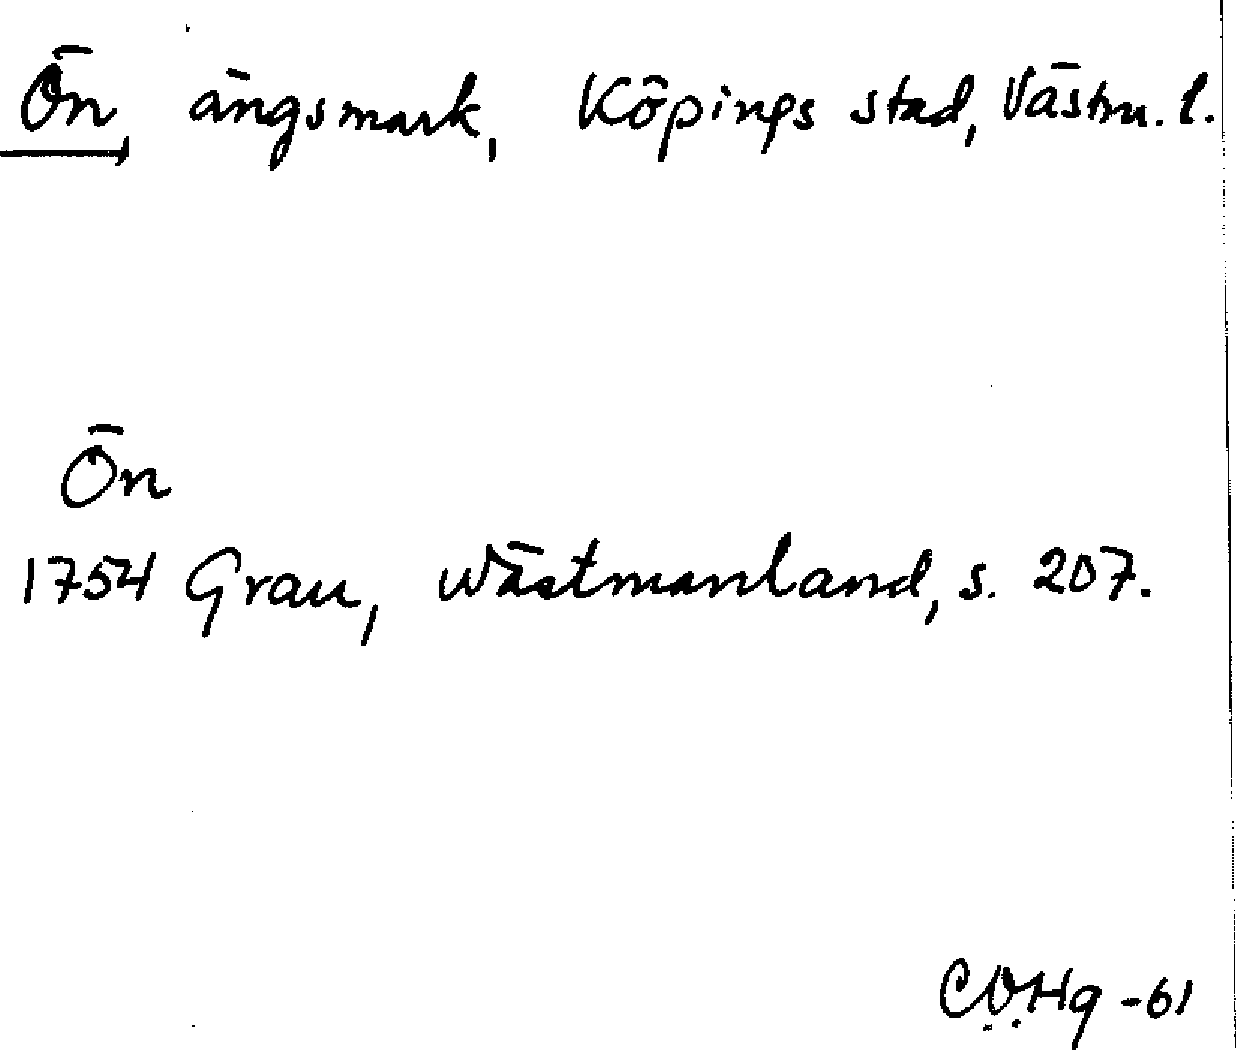 Ön, ängsmark, Köpings stad, Västm. l.
Ön
1754 Grau, Wästmanland, s. 207.
C.O.Hg -61